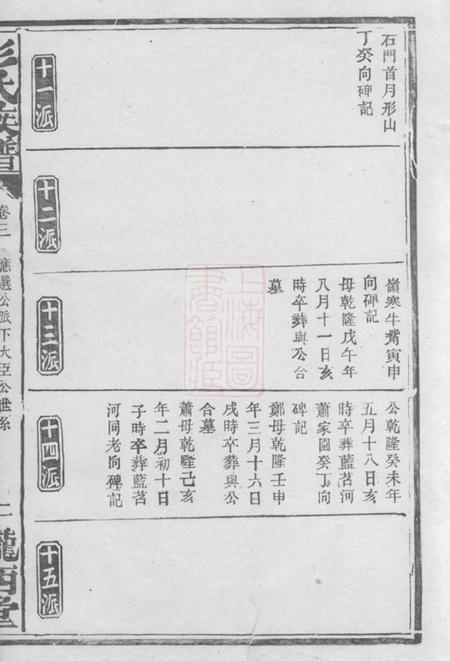 石門首月形山
丁癸向碑記
十一派
十二派
嶺寒牛觜寅申
向碑記
母乾隆戊午年
八月十一日亥
時卒葬與公合
墓
十三派
公乾隆癸未年
五月十八日亥
時卒葬藍茗河
蕭家園癸丁向
碑記
鄭母乾隆壬申
年三月十六日
戌時卒葬與公
合墓
蕭母乾隆己亥
年二月初十日
子時卒葬藍茗
河同老向碑記
十四派
十五派
彭氏族譜
卷三
應選公派下大臣公世系
隴西堂
上海圖
書館藏